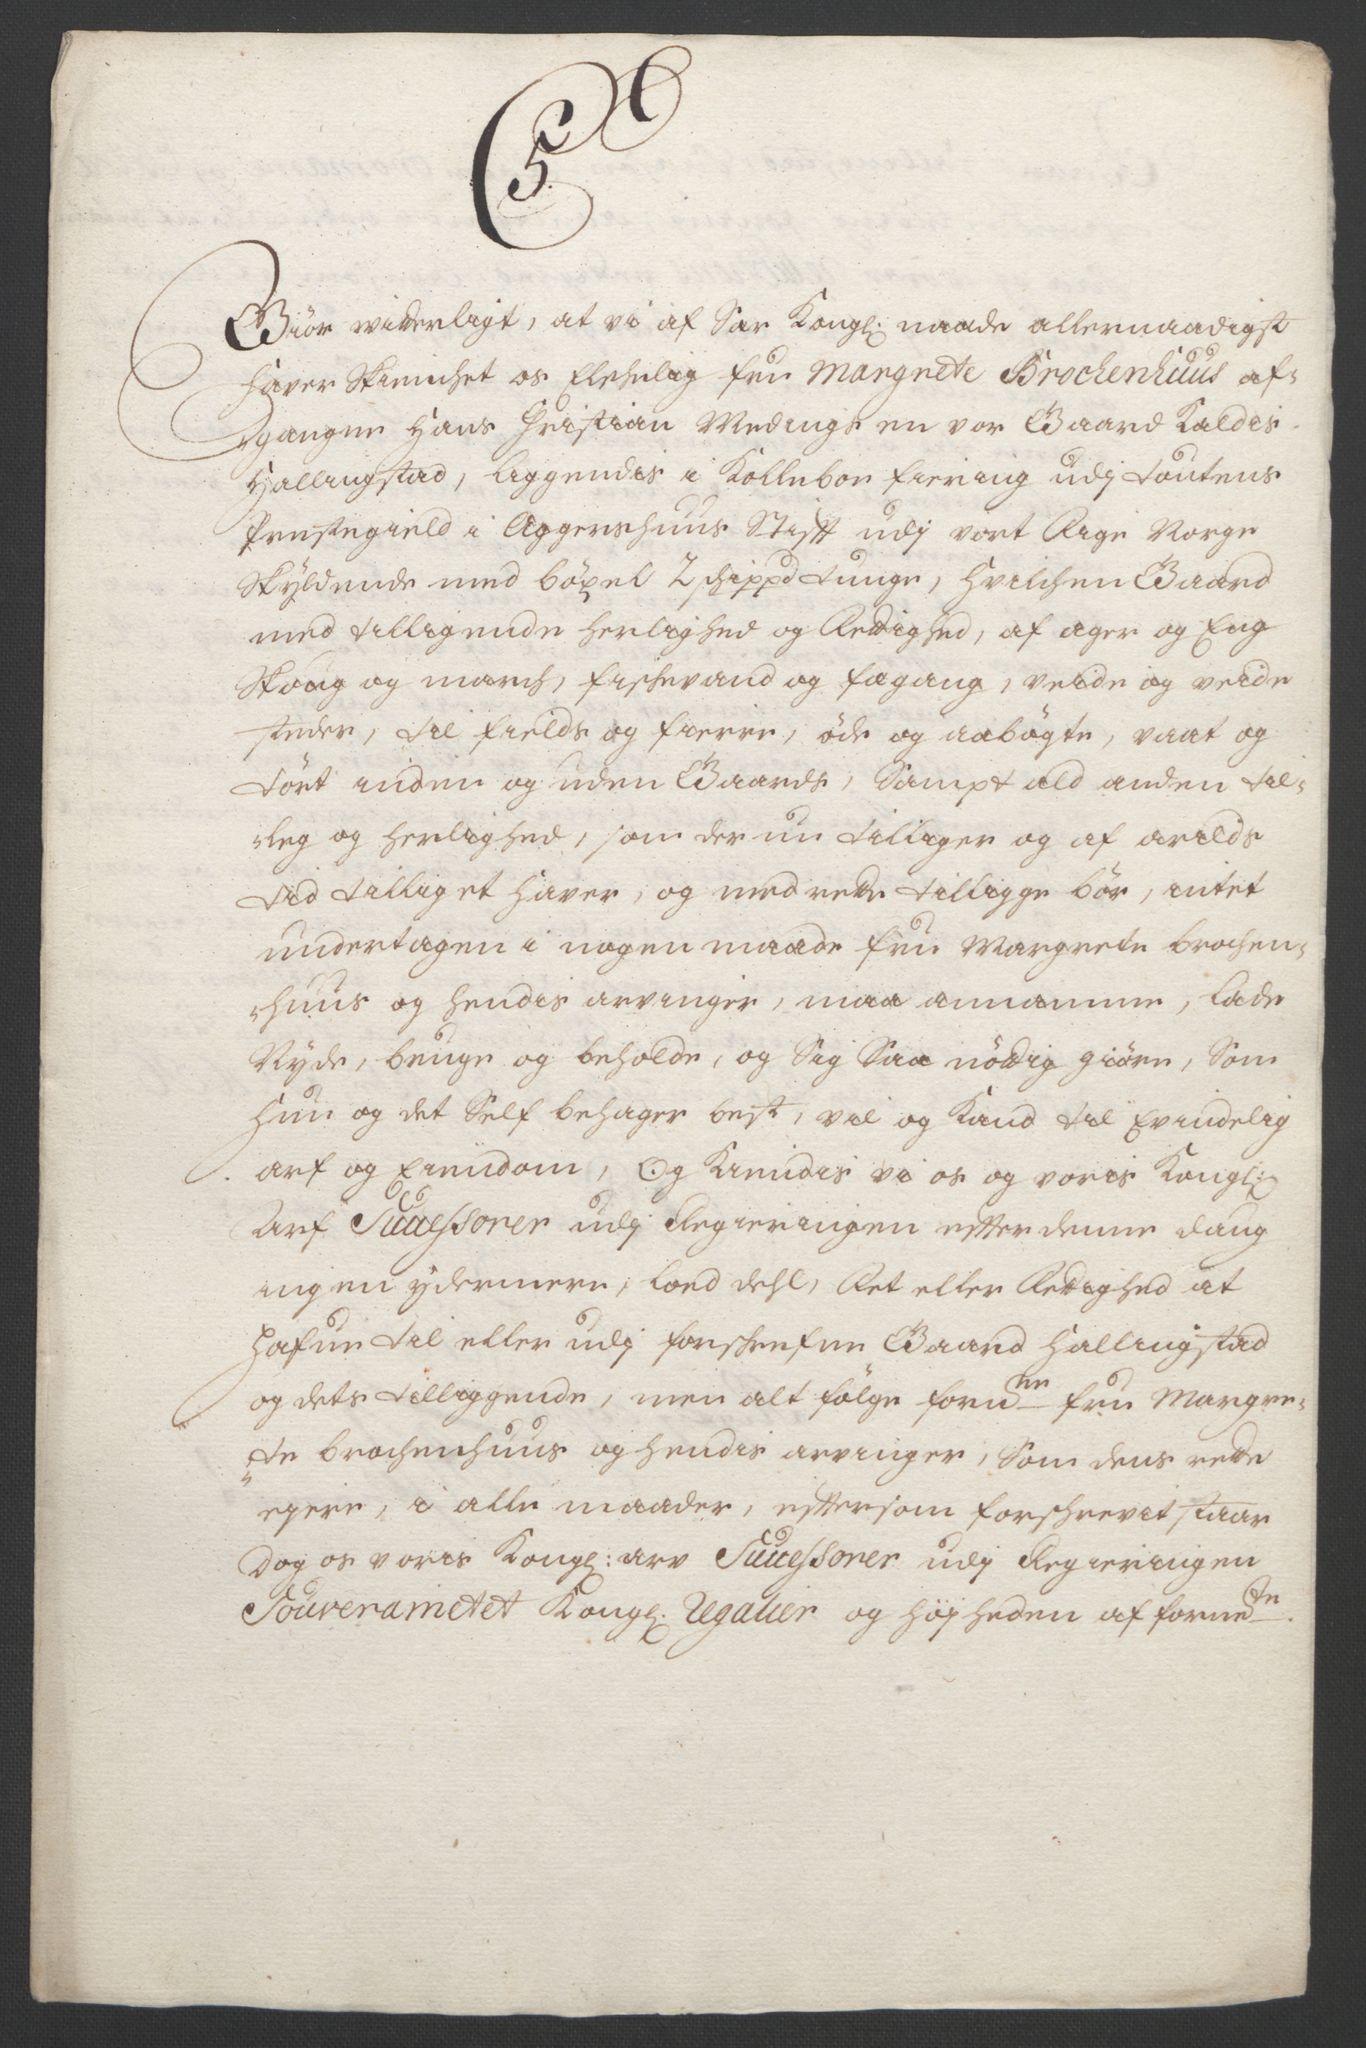 C 5
Giör witterligt, at vi af Sær Kongl: naade allernaadigst
haver Skienchet os Elskelig fru Margrete Brochenhuus af-
gangne Hans Christian Medings en vor Gaard Kaldis
Hallingstad, liggendis i Kollebou fiering udj Toutens
Prestegield i Aggershuus Stift udj vort Rige Norge
Skÿldende med böxel 2 schippd tunge, Hvilchen Gaard
med tilligende herlighed og Rettighed, af ager og Eng
Skoug og march, fischevand og fægang, veide og veide
steder, til fields og fierre, öde og aabögte, vaat og
tört inden og uden Gaards, Sampt ald anden til-
leg og herlighed, som der nu tilliger og af arilds
tid tilliget haver, og med rette tilligge bör, intet
undertagen i nogen maade fru Margrete brochen-
huus og hendis arvinger, maa annamme, lade
Nÿde, bruge og beholde, og Sig Saa nöttig giöre, Som
hun og det Self behager best, vil og Kand til Evindelig
arf og Eiendom, Og Kiendis vi os og voris Kongl:
Arf Successorer udj Regieringen efter denne daug
ingen ÿdermere, lod dehl, Ret eller Rettighed at
hafue til eller udj forschrefne Gaard Hallingstad
og dets tilliggende, men alt fölge fornne fru Margre-
te brochenhuus og hendis arvinger, Som dens rette
eyere, i alle maader, eftersom forschrevit staar
Dog os voris Kongl: arv Successorer udj Regieringen
Souverainetet Kongl. Regalier og höjheden af fornte